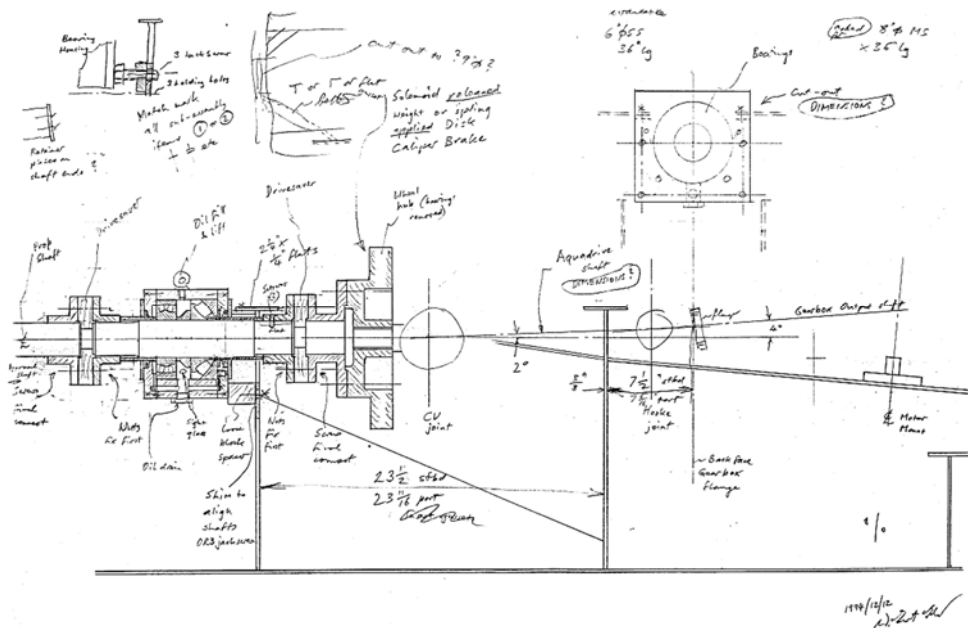 Bearing
Housing
3 Jackscrews
3 holding holes
Match mark
all sub-assembly
items ① & ②
Retainer
pieces on
shaft ends ?
cut out to ? 9"ϕ ?
T or Γ or flat
Solenoid released
weight or spring
applied Disk
Caliper Brake
6"ϕ SS
36" lg
8"ϕ MS
x 36" lg
Bearings
Cut-out
DIMENSIONS ?
Prop
Shaft
Drivesaver
Oil Fill
& lift
2 1/2" x
1/4" flats
Drivesaver
Wheel
hub (bearings
removed)
Aquadrive
shaft
DIMENSIONS ?
flange
Gearbox Output shaft
4°
2°
CV
joint
7 1/2" stbd
port
Hooke
joint
Motor
Mount
Back face
Gearbox
flange
Screws
final
connect
Nuts
fix first
Oil drain
Sight
glass
blocks
spacer
Nuts
fix
first
Screws
final
connect
Shim to
align
shafts
OR 3 jackscrews
23 1/2" stbd
23 11/16 port
1994/12/12